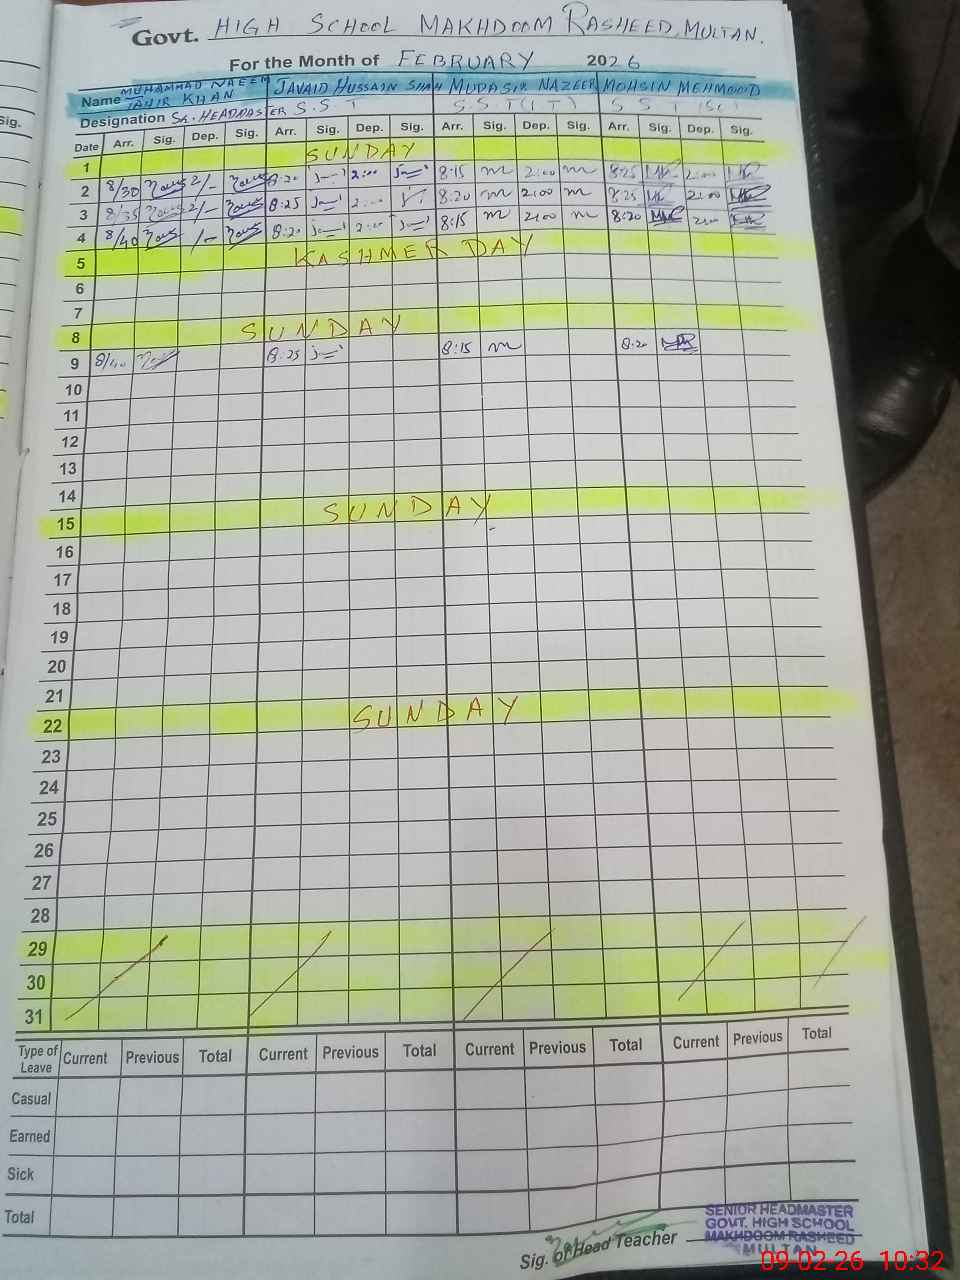 Govt. HIGH SCHOOL MAKHDOOM RASHEED, MULTAN.
For the Month of FEBRUARY 2026
Name MUHAMMAD NAEEM TAHIR KHAN JAVAID HUSSAIN SHAH MUDASIR NAZEER MOHSIN MEHMOOD
Designation Sr. HEADMASTER S.S.T S.S.T (I T) S S T (Sc)
Date Arr. Sig. Dep. Sig. Arr. Sig. Dep. Sig. Arr. Sig. Dep. Sig. Arr. Sig. Dep. Sig.
1 SUNDAY
2 8/30 2/- 8:20 2:00 8:15 2:00 8:25 2:00
3 8/35 2/- 8:25 2:00 8:20 2:00 8:25 2:00
4 8/40 1/- 8:20 2:00 8:15 2:00 8:20 2:00
5 KASHMER DAY
6
7
8 SUNDAY
9 8/40 8:25 8:15 8:20
10
11
12
13
14
15 SUNDAY
16
17
18
19
20
21
22 SUNDAY
23
24
25
26
27
28
29
30
31
Type of Leave Current Previous Total Current Previous Total Current Previous Total Current Previous Total
Casual
Earned
Sick
Total
Sig. of Head Teacher
SENIOR HEADMASTER
GOVT. HIGH SCHOOL
MAKHDOOM RASHEED
MULTAN
09-02-26 10:32